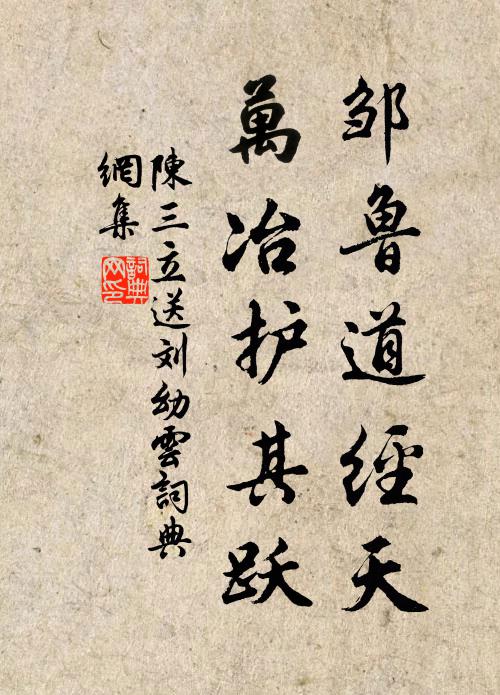 邹魯道經天
萬冶护其跃
陳三立送刘幼雲詞典
網集
詞典網印